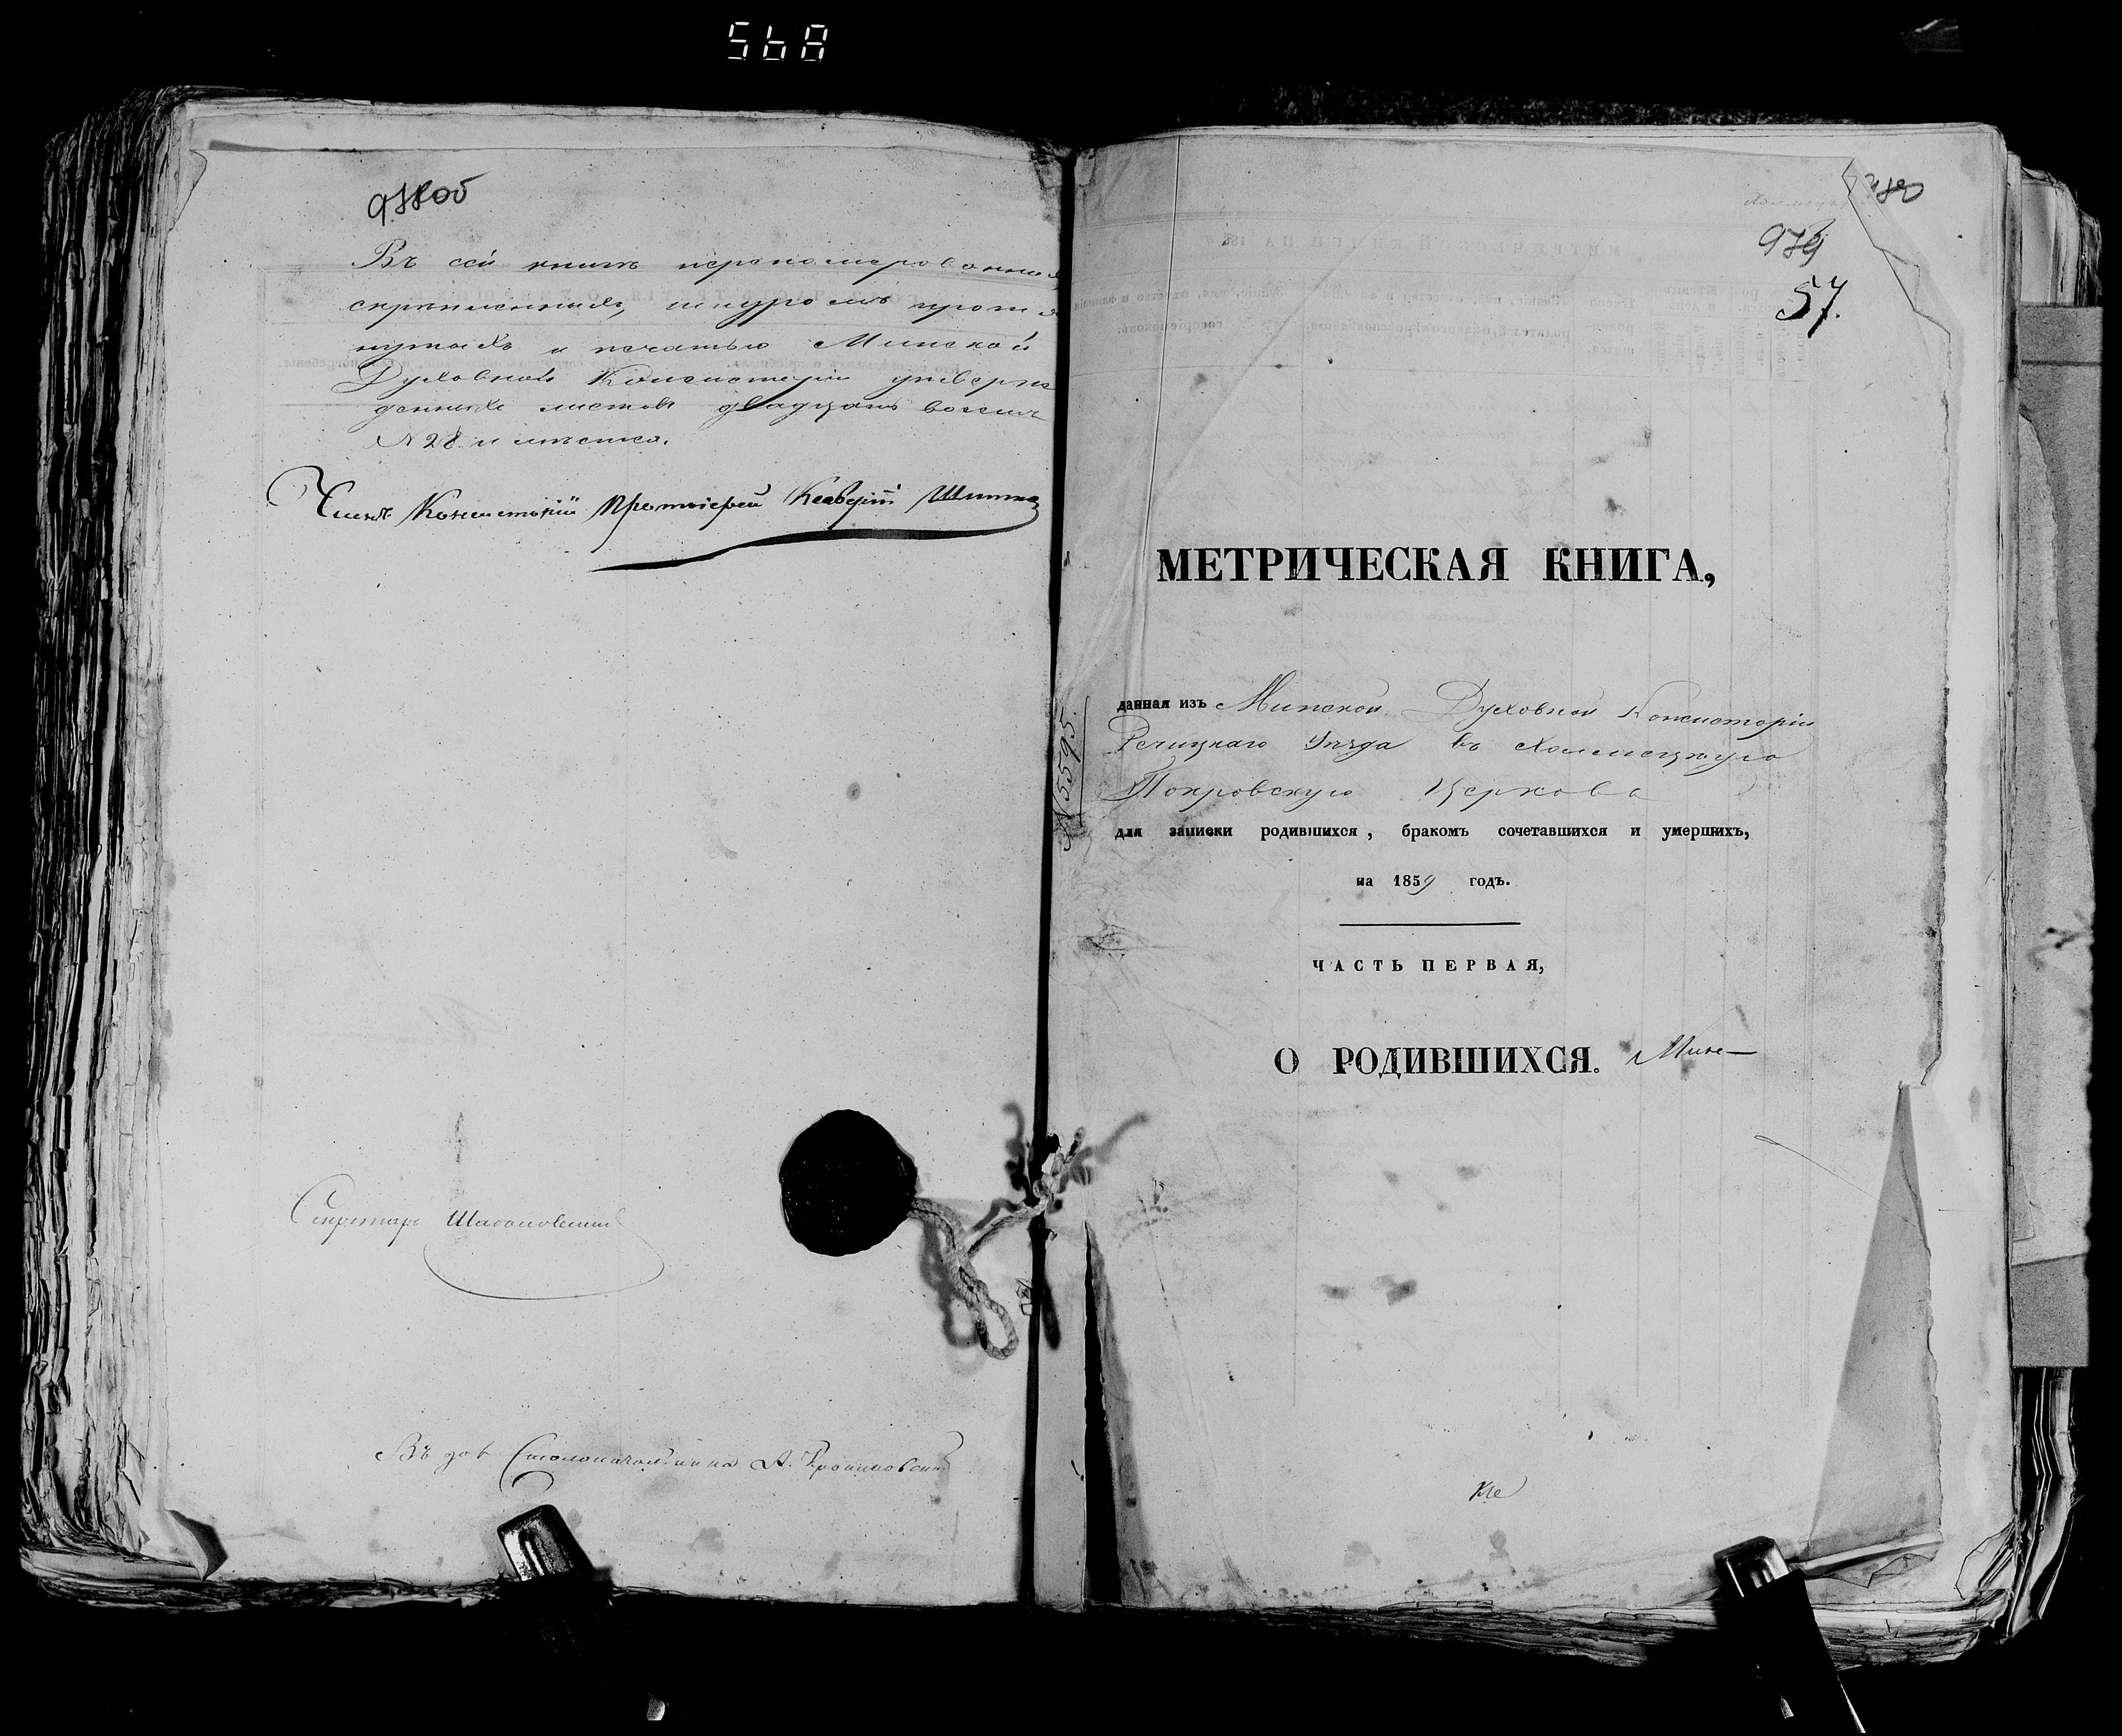 568
978об
Въ сей книгѣ перенумерованныхъ
скрѣпленныхъ, шнуромъ протя
нутыхъ и печатью Минской
Духовной Консисторіи утверж
денныхъ листовъ двадцать восемь
№ 28 и мѣстко.
Членъ Консисторіи Протоіерей
Секретарь
Въ дол Столоначальника А.
980
979
57.
МЕТРИЧЕСКАЯ КНИГА,
данная изъ Минской Духовной Консисторіи
Речицкаго Уѣзда въ Холмецкую
Покровскую Церковь
№ 5595.
для записки родившихся, бракомъ сочетавшихся и умершихъ,
на 1859 годъ.
ЧАСТЬ ПЕРВАЯ,
О РОДИВШИХСЯ.